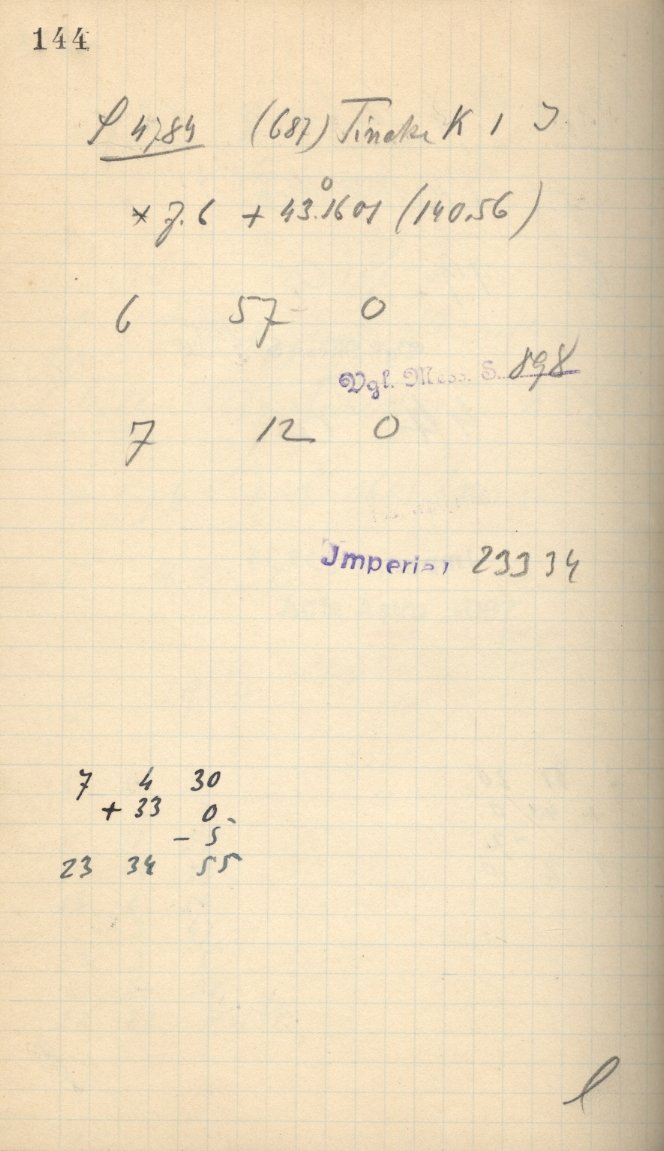 144
P 4784 (687) Tinette K 1 J.
* 7.6 + 43°.1601 (140.56)
6 57 0
Vgl. Mess. S. 898
7 12 0
Jmperial 23 34
7 4 30
+ 33 0
- 5
23 34 55